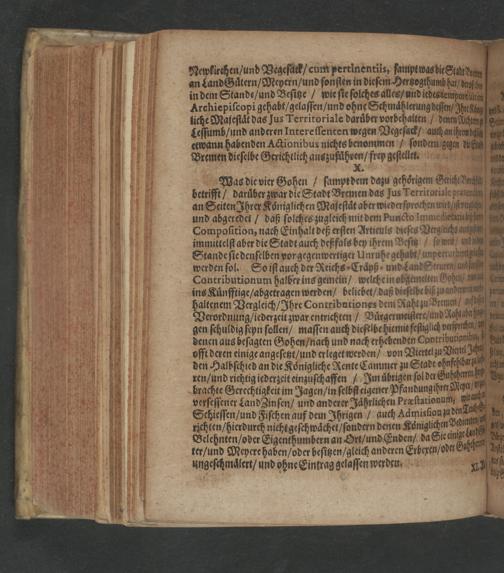 Newkirchen/und Vegesack/cum pertinentiis, sampt was die Stadt Bremen
an LandGütern/Meyern/und sonsten in diesem Hertzogthumb hat/
in dem Stande/und Besitze / wie sie solches alles/und
Archiepiscopi gehabt/gelassen/und ohne Schmählerung dessen/Ihre König-
liche Majestät das Jus Territoriale darüber vorbehalten / denen Richtern
Lessumb/und anderen Interessenten wegen Vegesack/ auch an ihren
etwann habenden Actionibus nichts benommen / sondern gegen die Stadt
Bremen dieselbe Gerichtlich auszuführen/frey gestellet.
X.
Was die vier Gohen / sampt dem dazu gehörigem Gerichte
betrifft / darüber zwar die Stadt Bremen das Jus Territoriale
an Seiten Ihrer Königlichen Majestät aber wiedersprochen wird/
und abgeredet / daß solches zugleich mit dem Puncto Immedietatis
Composition, nach Einhalt deß ersten Articuls dieses Vergleichs
immittelst aber die Stadt auch deßfals bey ihrem Besitz / so weit / und
Stande sie denselben vor gegenwertiger Unruhe gehabt/
werden sol. So ist auch der Reichs-Cräyß- und Land Steuren/
Contributionum halber ins gemein / welche in obgemelten Gohen
ins Künfftige/abgetragen werden / beliebet/daß dieselbe biß zu
haltenem Vergleich/Ihre Contributiones dem Raht zu Bremen / auf
Verordnung/iederzeit zwar entrichten / Bürgermeistere/und Raht aber
gen schuldig seyn sollen / massen auch dieselbe hiemit festiglich versprechen/
denen aus besagten Gohen/nach und nach erhebenden Contributionen/
offt deren einige angesetzt/und erleget werden / von Viertel zu Viertel Jahren
den Halbschied an die Königliche Rente Cammer zu Stade ohnfehlbar zu
ren/und richtig iederzeit einzuschaffen / Im übrigen sol der Gutsherren
brachte Gerechtigkeit im Jagen/in selbst eigener Pfandung ihrer Meyer/
versessener Land Zinsen/ und anderer Jährlichen Præstationum, wie auch
Schiessen/und Fischen auf dem Ihrigen / auch Admission zu den
richten/hierdurch nicht geschwächet/sondern denen Königlichen Bedienten
Belehnten/oder Eigenthumbern an Ort/und Enden/ da Sie einige
ter/und Meyere haben/oder besitzen/gleich anderen Erbexen/oder Gutsherren
ungeschmälert/und ohne Eintrag gelassen werden.
XI.